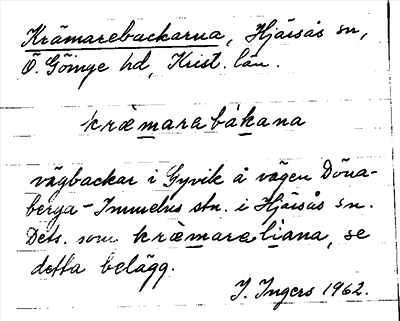 Krämarebackarna, Hjärsås sn,
Ö. Göinge hd, Krist. län.
kræmarebákana
vägbackar i Gyvik å vägen Döna-
berga - Immelns stn. i Hjärsås sn.
Dets. som kræmareliana, se
detta belägg.
I. Ingers 1962.